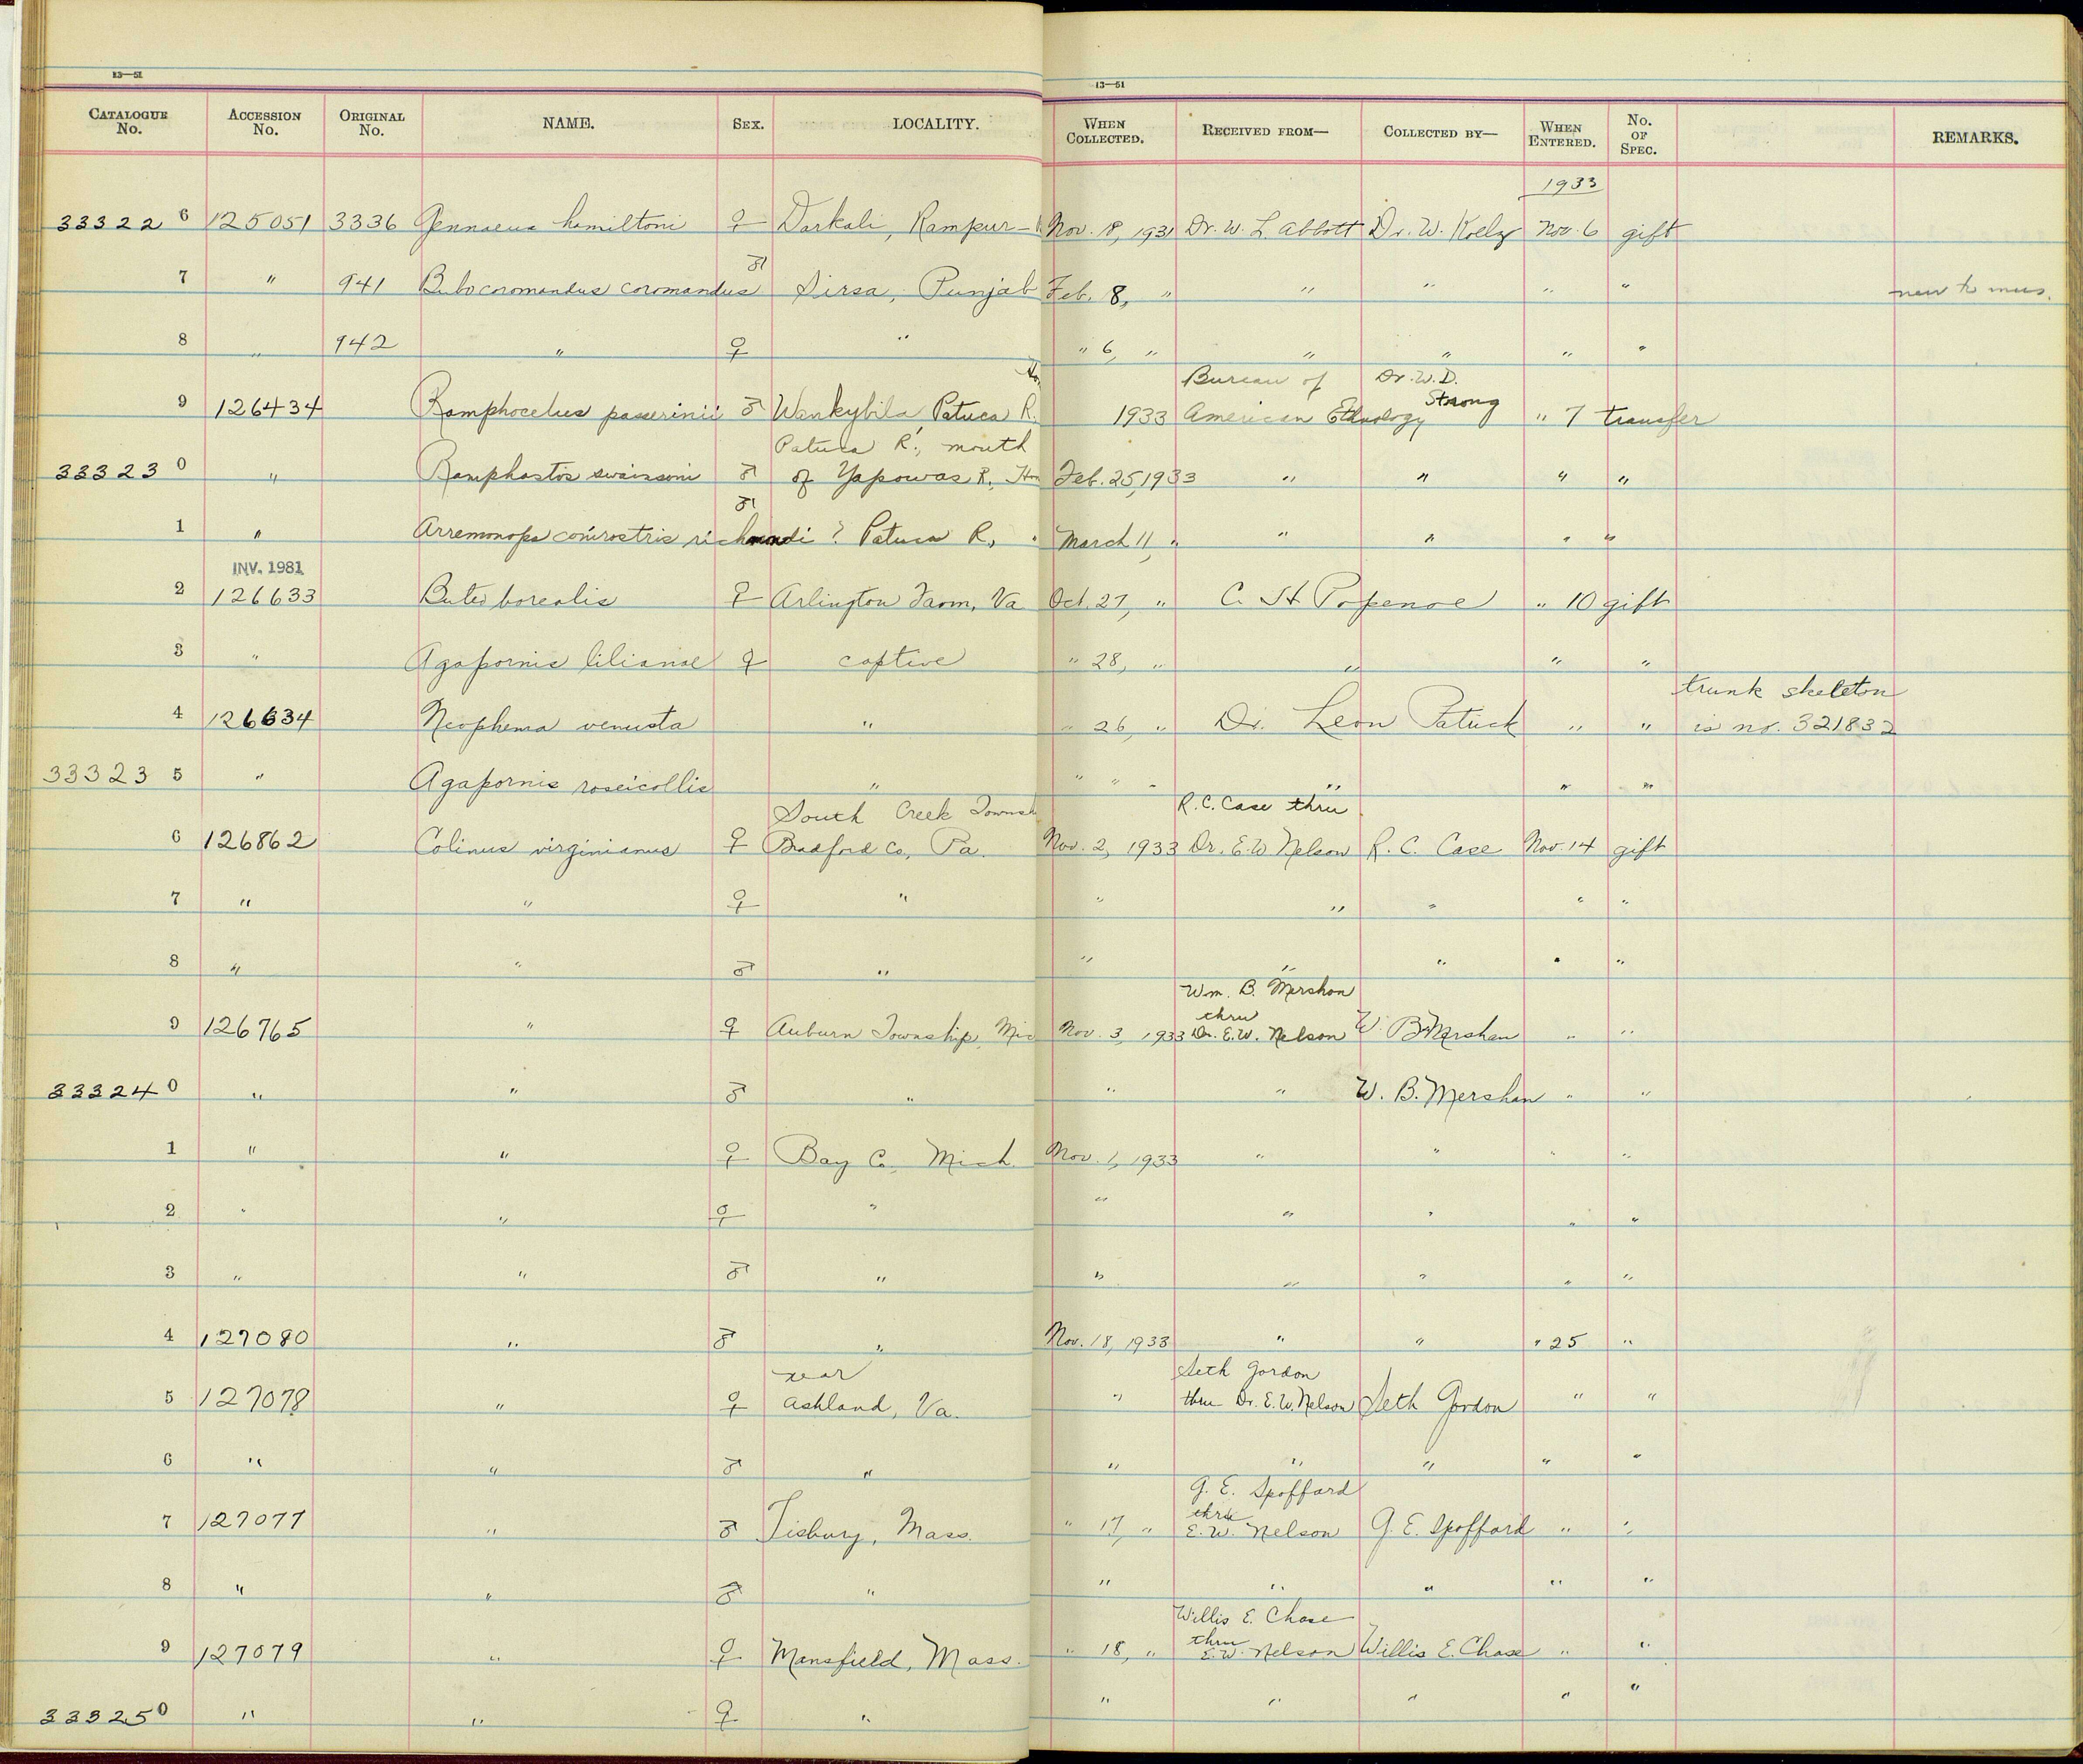 13—51
CATALOGUE No. ACCESSION No. ORIGINAL No. NAME. SEX. LOCALITY.
13—51
WHEN COLLECTED. RECEIVED FROM— COLLECTED BY— WHEN ENTERED. No. OF SPEC. REMARKS.
1933
33322 6 125051 3336 Gennaeus hamiltoni ♀ Darkali, Rampur- Nov. 18, 1931 Dr. W. L. Abbott Dr. W. Koelz Nov. 6 gift
♂
7 " 941 Bubo coromandus coromandus Sirsa, Punjab Feb. 8, " " " " " new to mus.
8 " 942 " ♀ " " 6, " " " " "
Bureau of Dr. W. D.
9 126434 Ramphocelus passerinii ♂ Wankybila Patuca R. 1933 American Ethnology Strong " 7 transfer
Patuca R., mouth
33323 0 " Ramphastos swainsoni ♂ of Yapowas R., Hon Feb. 25, 1933 " " " "
♂
1 " Arremonops conirostris richmondi ? Patuca R., " March 11, " " " " "
INV. 1981
2 126633 Buteo borealis ♀ Arlington Farm, Va Oct. 27, " C. H. Popenoe " 10 gift
3 " Agapornis lilianae ♀ captive " 28, " " " "
trunk skeleton
4 126634 Neophema venusta " " 26, " Dr. Leon Patuck " " is no. 321832
33323 5 " Agapornis roseicollis " " " " " " "
South Creek Townsh R. C. Case thru
6 126862 Colinus virginianus ♀ Bradford Co., Pa. Nov. 2, 1933 Dr. E. W. Nelson R. C. Case Nov. 14 gift
7 " " ♀ " " " " " "
8 " " ♂ " " " " " "
Wm. B. Mershon
thru
9 126765 " ♀ Auburn Township, Mic Nov. 3, 1933 Dr. E. W. Nelson W. B. Mershan " "
33324 0 " " ♂ " " " W. B. Mershan " "
1 " " ♀ Bay Co, Mich. Nov. 1, 1933 " " " "
2 " " ♀ " " " " " "
3 " " ♂ " " " " " "
4 127080 " ♂ " Nov. 18, 1933 " " " 25 "
near Seth Gordon
5 127078 " ♀ Ashland, Va. " thru Dr. E. W. Nelson Seth Gordon " "
6 " " ♂ " " " " " "
G. E. Spofford
thru
7 127077 " ♂ Tisbury, Mass. " 17, " E. W. Nelson G. E. Spofford " "
8 " " ♂ " " " " " "
Willis E. Chase
thru
9 127079 " ♀ Mansfield, Mass. " 18, " E. W. Nelson Willis E. Chase " "
33325 0 " " ♀ " " " " " "